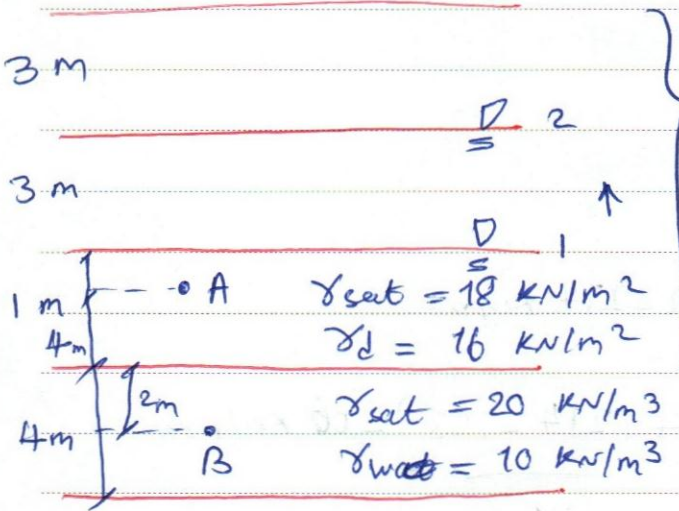 3 m
2
3 m
1
1 m
A
γsat = 18 KN/m²
4m
γd = 16 KN/m²
2m
γsat = 20 KN/m³
4m
B
γwat = 10 KN/m³